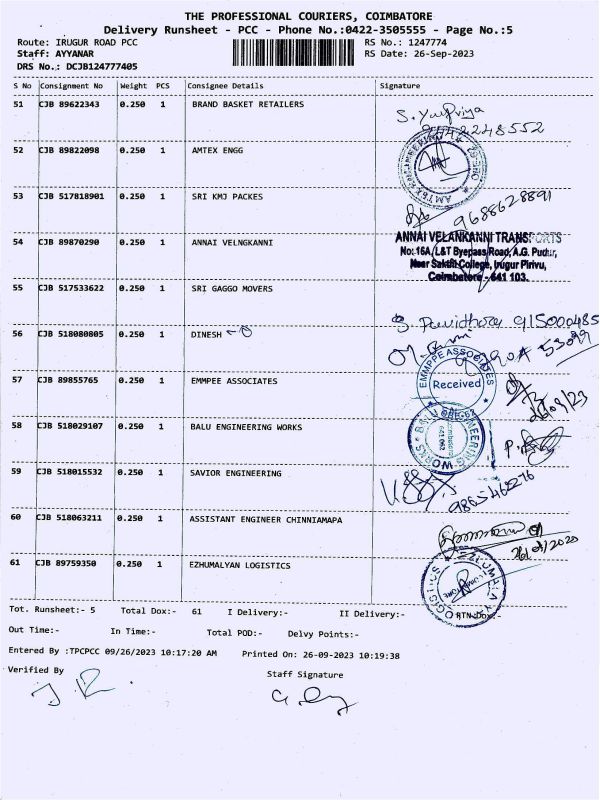 THE PROFESSIONAL COURIERS, COIMBATORE
Delivery Runsheet - PCC - Phone No.:0422-3505555 - Page No.:5
Route: IRUGUR ROAD PCC RS No.: 1247774
Staff: AYYANAR RS Date: 26-Sep-2023
DRS No.: DCJB124777405
S No Consignment No Weight PCS Consignee Details Signature
51 CJB 89622343 0.250 1 BRAND BASKET RETAILERS
52 CJB 89822098 0.250 1 AMTEX ENGG
53 CJB 517818901 0.250 1 SRI KMJ PACKES
9688628891
54 CJB 89870290 0.250 1 ANNAI VELNGKANNI
ANNAI VELANKANNI TRANSPORTS
No:16A, L&T Byepass Road, A.G. Pudur,
Near Sakthi College, Irugur Pirivu,
Coimbatore - 641 103.
55 CJB 517533622 0.250 1 SRI GAGGO MOVERS
56 CJB 518080805 0.250 1 DINESH
57 CJB 89855765 0.250 1 EMMPEE ASSOCIATES
EMMPPE ASSOCIATES
Received
58 CJB 518029107 0.250 1 BALU ENGINEERING WORKS
59 CJB 518015532 0.250 1 SAVIOR ENGINEERING
60 CJB 518063211 0.250 1 ASSISTANT ENGINEER CHINNIAMAPA
61 CJB 89759350 0.250 1 EZHUMALYAN LOGISTICS
Tot. Runsheet:- 5 Total Dox:- 61 I Delivery:- II Delivery:- RTN Dox:-
Out Time:- In Time:- Total POD:- Delvy Points:-
Entered By :TPCPCC 09/26/2023 10:17:20 AM Printed On: 26-09-2023 10:19:38
Verified By Staff Signature